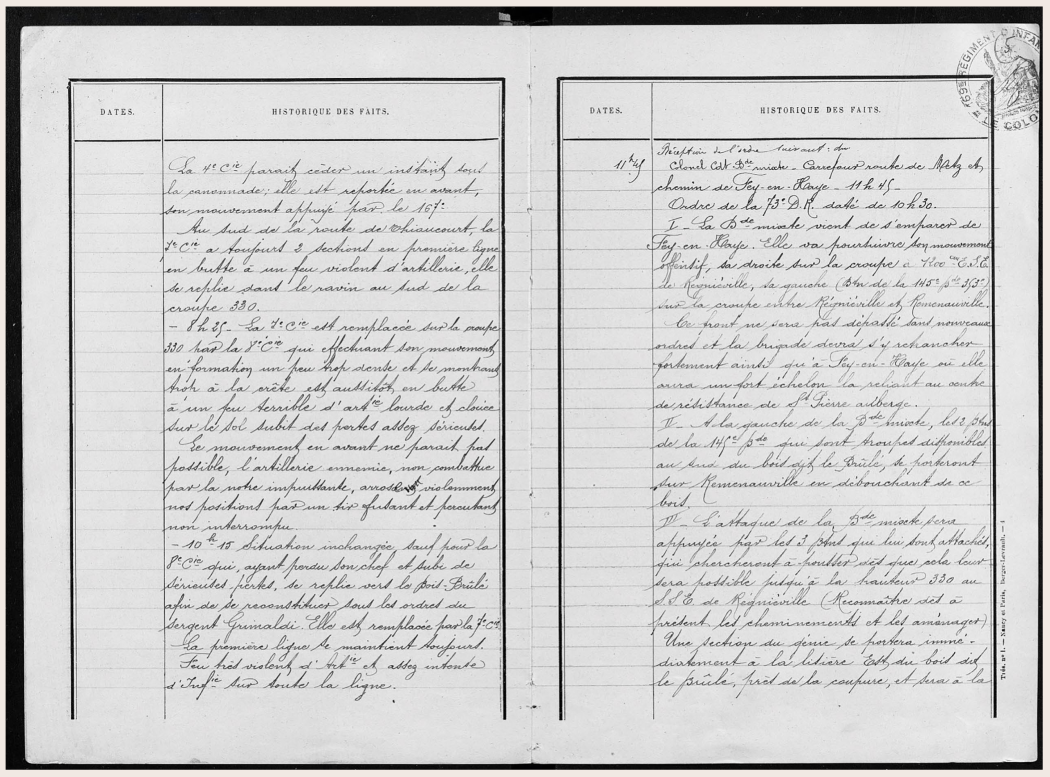 DATES.
HISTORIQUE DES FAITS.
La 4e Cie parait céder un instant sous
la canonnade ; elle est reportée en avant,
son mouvement appuyé par le 167e
Au sud de la route de Thiaucourt, la
7e Cie a toujours 2 sections en première ligne
en butte à un feu violent d'artillerie, elle
se replie dans le ravin au sud de la
croupe 330.
- 8 h 25 - La 7e Cie est remplacée sur la croupe
330 par la 8e Cie qui effectuant son mouvement
en formation un peu trop dense et se montrant
trop à la crête est aussitôt en butte
à un feu terrible d'artrie lourde et clouée
sur le sol subit des pertes assez sérieuses.
Le mouvement en avant ne parait pas
possible, l'artillerie ennemie, non combattue
par la notre impuissante, violemment
nos positions par un tir fusant et percutant
non interrompu.
- 10h 15 Situation inchangée sauf pour la
8e Cie qui, ayant perdu son chef et subi de
sérieuses pertes, se replie vers le Bois-Brûlé
afin de se reconstituer sous les ordres du
sergent Grimaldi. Elle est remplacée par la 7e Cie.
La première ligne se maintient toujours.
Feu très violent d'Artie et assez intense
d'Infie sur toute la ligne.
DATES.
HISTORIQUE DES FAITS.
69e RÉGIMENT D'INFAN
LE COLO
5
11h45
Réception de l'ordre suivant : du
Colonel Cdt Bde mixte - Carrefour route de Metz et
chemin de Fey-en-Haye - 11 h 45 -
Ordre de la 73e D.R. daté de 10 h 30.
I - La Bde mixte vient de s'emparer de
Fey-en-Haye. Elle va poursuivre son mouvement
offensif, sa droite sur la croupe à 1200m E.S.E.
de Régniéville, sa gauche (Btn de la 145e Bde 353e)
sur la croupe entre Régniéville et Remenauville.
Ce front ne sera pas dépassé sans nouveaux
ordres et la brigade devra s'y retrancher
fortement ainsi qu'à Fey-en-Haye où elle
aura un fort échelon la reliant au centre
de résistance de St Pierre auberge.
II - A la gauche de la Bde mixte, les 2 Btns
de la 145e Bde qui sont troupes disponibles
au sud du bois dit le Brûlé, se porteront
sur Remenauville en débouchant de ce
bois.
III - L'attaque de la Bde mixte sera
appuyée par les 3 Btns qui lui sont attachés,
qui chercheront à pousser dès que cela leur
sera possible jusqu'à la hauteur 330 au
S.S.E. de Régniéville (Reconnaître dès à
présent les cheminements et les aménager)
Une section du génie se portera immé-
diatement à la lisière Est du bois dit
le Brûlé, près de la coupure, et sera à la
Trés. no 1. — Nancy et Paris, Berger-Levrault. — 4